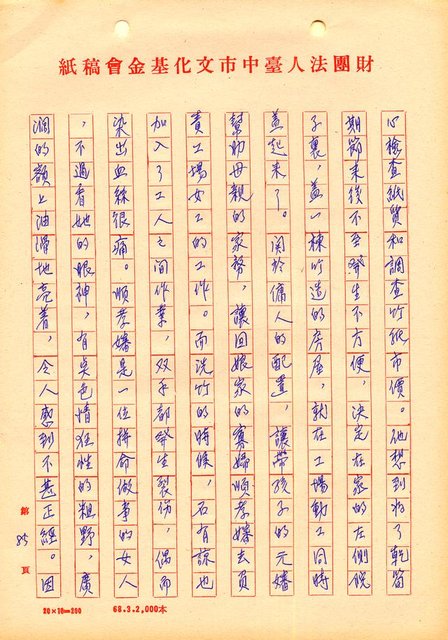 財團法人臺中市文化基金會稿紙
心檢查紙質和調查竹紙市價。他想到為了乾筍
期節來後不會發生不方便，決定在家的左側院
子裏，蓋一棟竹造的房屋，就在工場動工同時
蓋起來了。關於傭人的配置，讓帶孩子的元嬸
幫助母親的家務，讓回娘家的寡婦順孝嬸去負
責工場女工的工作。而洗竹的時候，石有諒也
加入了工人之間作業，双手都發生裂伤，偶而
染出血絲很痛。順孝嬸是一位拼命做事的女人
，不過看她的眼神，有桌色情狂性的粗野，廣
濶的額上油滑地亮着，令人感到不甚正經。因
第 85 頁
20×10=200 68.3.2,000本